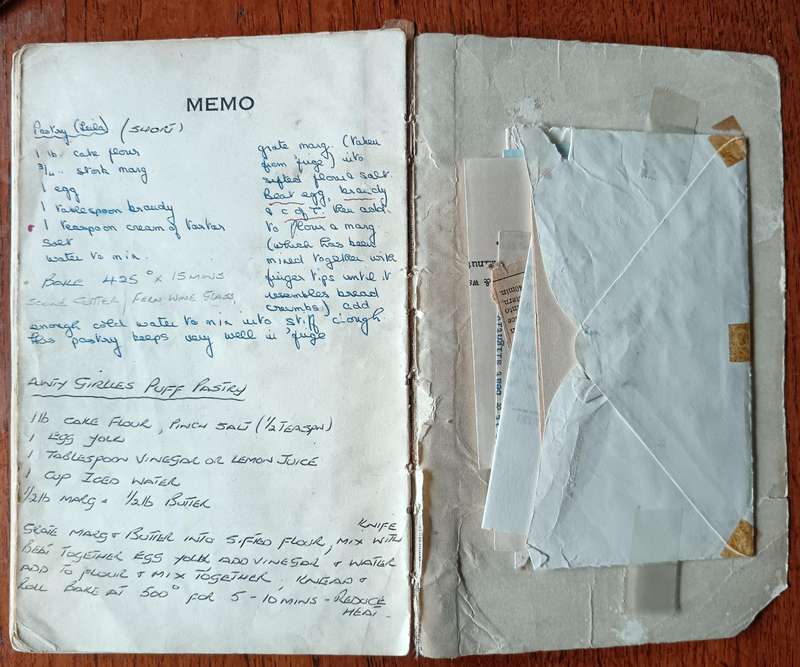 MEMO
Pastry (Leila) (SHORT)
1 lb cake flour
3/4 .. stork marg
1 egg
1 tablespoon brandy
1 teaspoon cream of tartar
salt
water to mix
BAKE 425° x 15 MINS
SCONE CUTTER / FERN WINE GLASS
grate marg. (taken
from 'fuge) into
sifted flour & salt.
Beat egg, brandy
& C of T. then add
to flour & marg
(which has been
mixed together with
finger tips until it
resembles bread
crumbs) add
enough cold water to mix into stiff dough.
This pastry keeps very well in 'fuge
AUNTY GIRLIES PUFF PASTRY
1 lb CAKE FLOUR, PINCH SALT (1/2 TEASPN)
1 EGG YOLK
1 TABLESPOON VINEGAR OR LEMON JUICE
1 CUP ICED WATER
1/2 lb MARG & 1/2 lb BUTTER
GRATE MARG & BUTTER INTO SIFTED FLOUR, MIX WITH KNIFE
BEAT TOGETHER EGG YOLK ADD VINEGAR & WATER
ADD TO FLOUR & MIX TOGETHER, KNEAD &
ROLL BAKE AT 500° FOR 5 - 10 MINS - REDUCE
HEAT.
& beat slightly